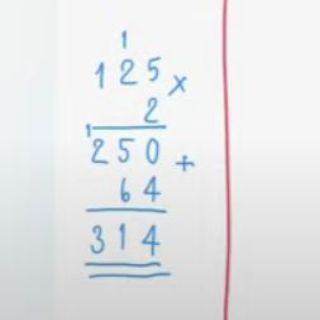 1
125 x
2
1
250 +
64
314